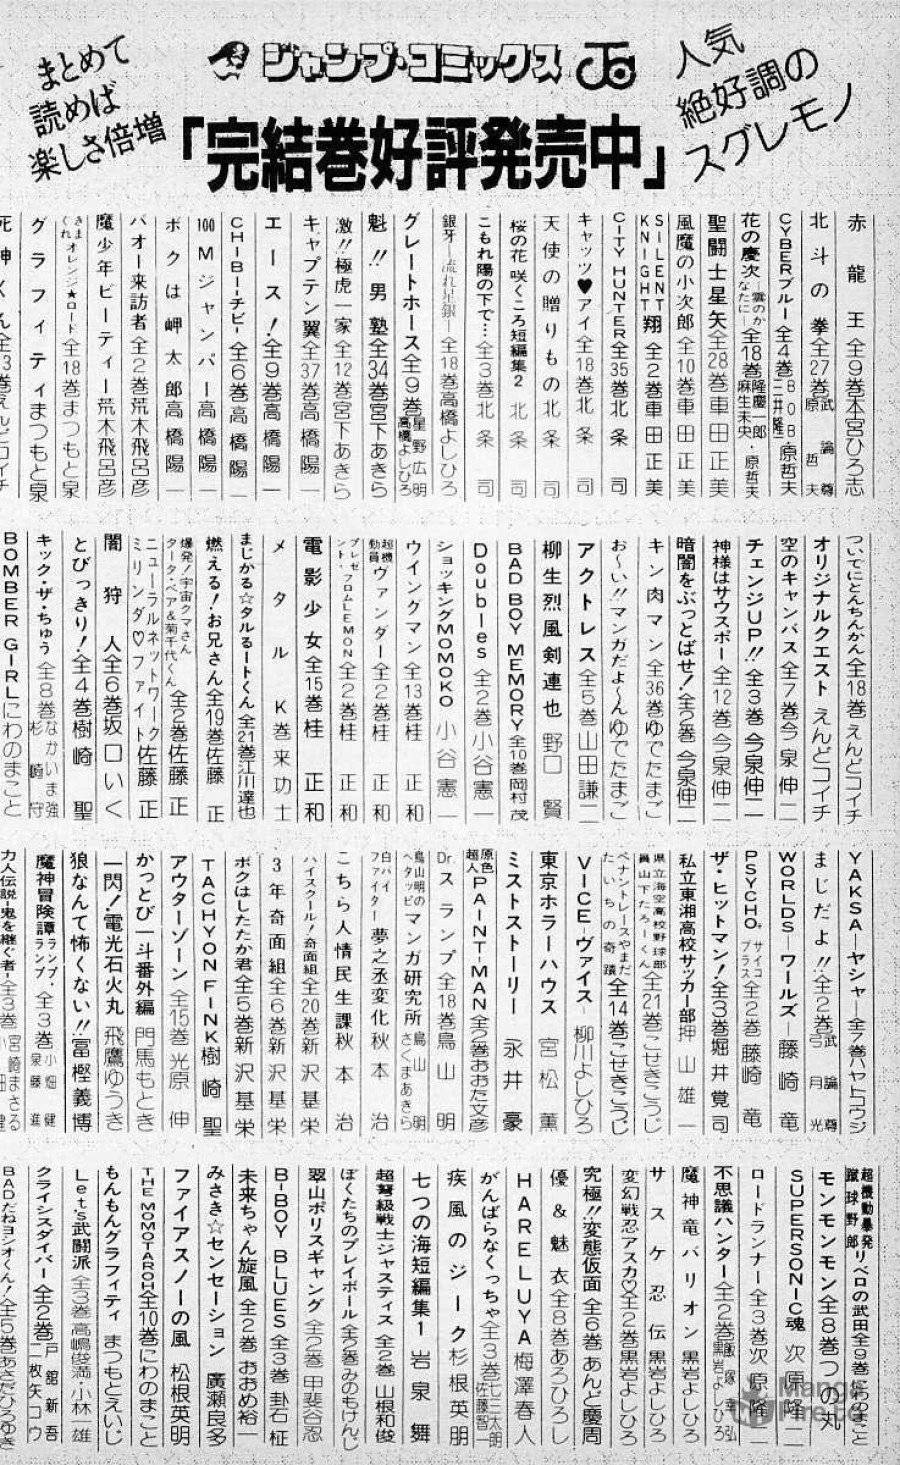 まとめて
読めば
楽しさ倍増
ジャンプ・コミックス
人気
絶好調の
スグレモノ
「完結巻好評発売中」
赤龍王 全9巻 本宮ひろ志
北斗の拳 全27巻 武論尊 原哲夫
CYBERブルー 全4巻 BOB 三井隆一 原哲夫
花の慶次―雲のかなたに― 全18巻 隆慶一郎 麻生未央 原哲夫
聖闘士星矢 全28巻 車田正美
風魔の小次郎 全10巻 車田正美
SILENT KNIGHT 翔 全2巻 車田正美
CITY HUNTER 全35巻 北条司
キャッツ♥アイ 全18巻 北条司
天使の贈りもの 北条司
桜の花咲くころ 短編集2 北条司
こもれ陽の下で… 全3巻 北条司
銀牙―流れ星 銀― 全18巻 高橋よしひろ
グレートホース 全9巻 星野広明 高橋よしひろ
魁!!男塾 全34巻 宮下あきら
激!!極虎一家 全12巻 宮下あきら
キャプテン翼 全37巻 高橋陽一
エース! 全9巻 高橋陽一
CHIBI―チビ― 全6巻 高橋陽一
100Mジャンパー 高橋陽一
ボクは岬太郎 高橋陽一
バオー来訪者 全2巻 荒木飛呂彦
魔少年ビーティー 荒木飛呂彦
きまぐれオレンジ★ロード 全18巻 まつもと泉
グラフィティ まつもと泉
死神くん 全13巻 えんどコイチ
ついでにとんちんかん 全18巻 えんどコイチ
オリジナルクエスト えんどコイチ
空のキャンバス 全7巻 今泉伸二
チェンジUP!! 全3巻 今泉伸二
神様はサウスポー 全12巻 今泉伸二
暗闇をぶっとばせ! 全2巻 今泉伸二
キン肉マン 全36巻 ゆでたまご
お〜い!!マンガだよ〜ん ゆでたまご
アクトレス 全5巻 山田謙二
柳生烈風剣連也 野口賢
BAD BOY MEMORY 全10巻 岡村茂
Doubles 全2巻 小谷憲一
ショッキングMOMOKO 小谷憲一
ウイングマン 全13巻 桂正和
超機動員ヴァンダー 全2巻 桂正和
プレゼント・フロムLEMON 全2巻 桂正和
電影少女 全15巻 桂正和
メタルK 巻来功士
まじかる☆タルるートくん 全21巻 江川達也
燃える!お兄さん 全19巻 佐藤正
爆発!宇宙クマさんターター・ベア&菊千代くん 全2巻 佐藤正
ニューラルネットワークミリンダ♡ファイト 佐藤正
闇狩人 全6巻 坂口いく
とびっきり! 全4巻 樹崎聖
キック・ザ・ちゅう 全8巻 なかいま強 杉崎守
BOMBER GIRL にわのまこと
YAKSA―ヤシャ― 全7巻 ハヤトコウジ
まじだよ!! 全2巻 武論尊 弓月光
WORLDS―ワールズ― 藤崎竜
PSYCHO+ サイコプラス 全2巻 藤崎竜
ザ・ヒットマン! 全3巻 堀井覚司
私立東湘高校サッカー部 押山雄一
県立海空高校野球部員山下たろーくん 全21巻 こせきこうじ
ペナントレースやまだたいちの奇蹟 全14巻 こせきこうじ
VICE―ヴァイス― 柳川よしひろ
東京ホラーハウス 宮松薫
ミストストーリー 永井豪
原色超人PAINT-MAN 全2巻 おおた文彦
Dr.スランプ 全18巻 鳥山明
鳥山明のヘタッピマンガ研究所 鳥山明 さくまあきら
白バイファイター夢之丞変化 秋本治
こちら人情民生課 秋本治
ハイスクール!奇面組 全20巻 新沢基栄
3年奇面組 全6巻 新沢基栄
ボクはしたたか君 全5巻 新沢基栄
TACHYON FINK 樹崎聖
アウターゾーン 全15巻 光原伸
かっとび一斗 番外編 門馬もとき
一閃!電光石火丸 飛鷹ゆうき
狼なんて怖くない!! 冨樫義博
魔神冒険譚ランプ・ランプ 全3巻 小畑健 泉藤進
力人伝説―鬼を継ぐ者― 全3巻 宮崎まさる 小畑健
超機動暴発蹴球野郎リベロの武田 全9巻 にわのまこと
モンモンモン 全8巻 つの丸
SUPERSONIC魂 次原隆二
ロードランナー 全3巻 次原隆二
不思議ハンター 全2巻 飯塚幸弘 黒岩よしひろ
魔神竜バリオン 黒岩よしひろ
サスケ忍伝 黒岩よしひろ
変幻戦忍アスカ♡ 全2巻 黒岩よしひろ
究極!!変態仮面 全6巻 あんど慶周
優&魅衣 全8巻 あろひろし
HARELUYA 梅澤春人
がんばらなくっちゃ 全3巻 七三太朗 佐藤智一
疾風のジーク 杉根英朋
七つの海 短編集1 岩泉舞
超弩級戦士ジャスティス 全2巻 山根和俊
ぼくたちのプレイボール 全2巻 みのもけんじ
翠山ポリスギャング 全2巻 甲斐谷忍
B-BOY BLUES 全3巻 卦石柾
未来ちゃん旋風 全2巻 おおめ裕一
みさき☆センセーション 廣瀬良多
ファイアスノーの風 松根英明
THE MOMOTAROH 全10巻 にわのまこと
もんもんグラフィティ まつもとえいじ
Lets武闘派 全3巻 高嶋俊満・小林一雄
クライシスダイバー 全2巻 戸舘新吾 二枚矢コウ
BADだねヨシオくん! 全5巻 あさだひろゆき